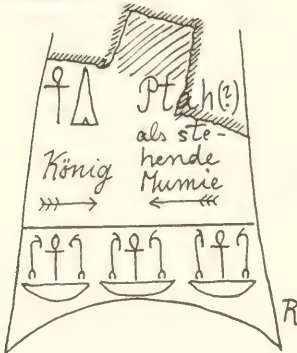 Ptah(?)
als ste-
hende
Mumie
König
R